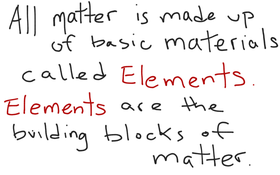 All matter is made up
of basic materials
called Elements.
Elements are the
building blocks of
matter.